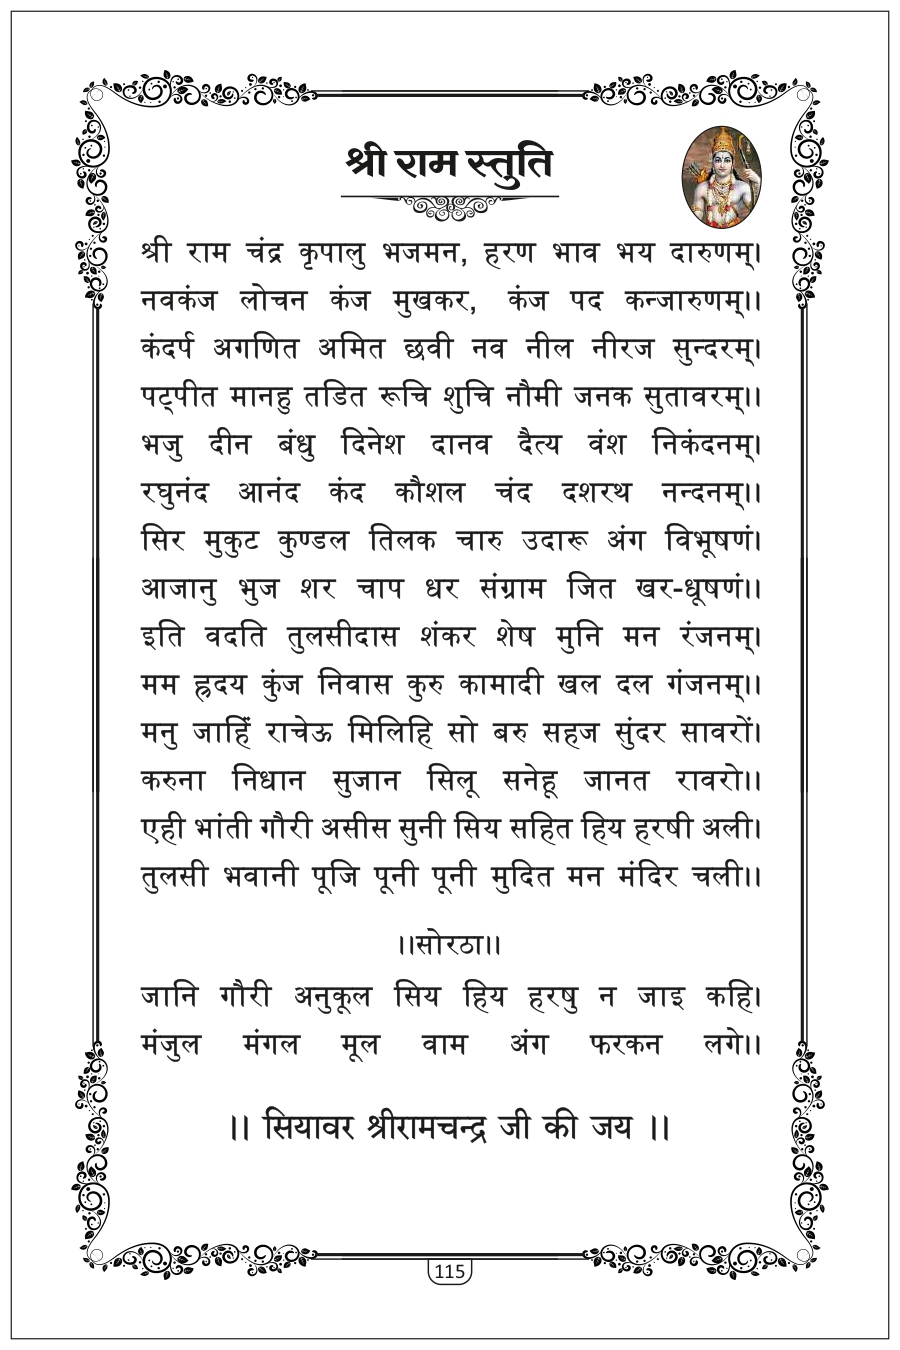 श्री राम स्तुति
श्री राम चंद्र कृपालु भजमन, हरण भाव भय दारुणम्।
नवकंज लोचन कंज मुखकर, कंज पद कन्जारुणम्।।
कंदर्प अगणित अमित छवी नव नील नीरज सुन्दरम्।
पट्पीत मानहु तडित रूचि शुचि नौमी जनक सुतावरम्।।
भजु दीन बंधु दिनेश दानव दैत्य वंश निकंदनम्।
रघुनंद आनंद कंद कौशल चंद दशरथ नन्दनम्।।
सिर मुकुट कुण्डल तिलक चारु उदारू अंग विभूषणं।
आजानु भुज शर चाप धर संग्राम जित खर-धूषणं।।
इति वदति तुलसीदास शंकर शेष मुनि मन रंजनम्।
मम ह्रदय कुंज निवास कुरु कामादी खल दल गंजनम्।।
मनु जाहिं राचेऊ मिलिहि सो बरु सहज सुंदर सावरों।
करुना निधान सुजान सिलू सनेहू जानत रावरो।।
एही भांती गौरी असीस सुनी सिय सहित हिय हरषी अली।
तुलसी भवानी पूजि पूनी पूनी मुदित मन मंदिर चली।।
।।सोरठा।।
जानि गौरी अनुकूल सिय हिय हरषु न जाइ कहि।
मंजुल मंगल मूल वाम अंग फरकन लगे।।
।। सियावर श्रीरामचन्द्र जी की जय ।।
115